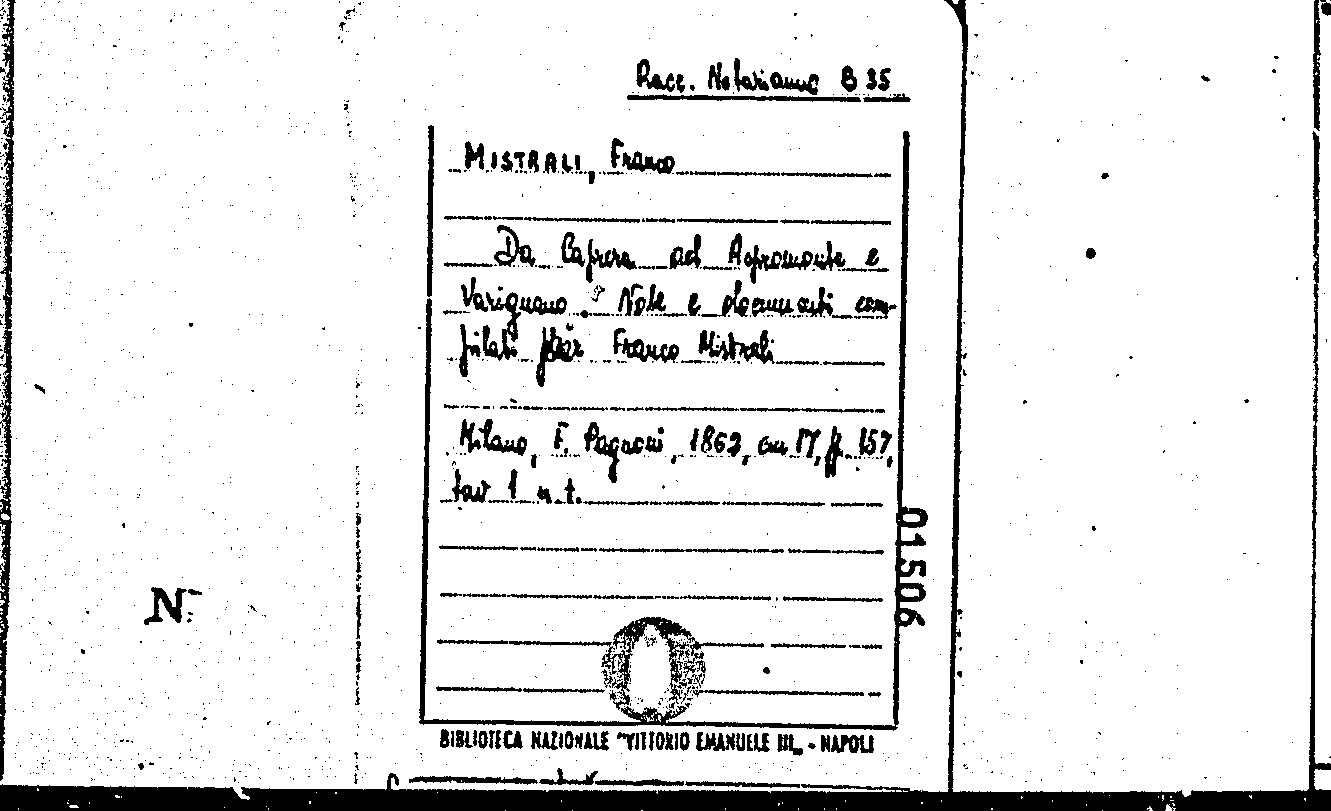 Racc. Notarianno B 35
MISTRALI, Franco
Da Caprera ad Aspromonte e
Varignano. Note e documenti com-
pilati per Franco Mistrali
Milano, F. Pagnoni, 1862, cm 17, pp. 157,
tav 1 n. t.
01506
N.
BIBLIOTECA NAZIONALE "VITTORIO EMANUELE III„ - NAPOLI